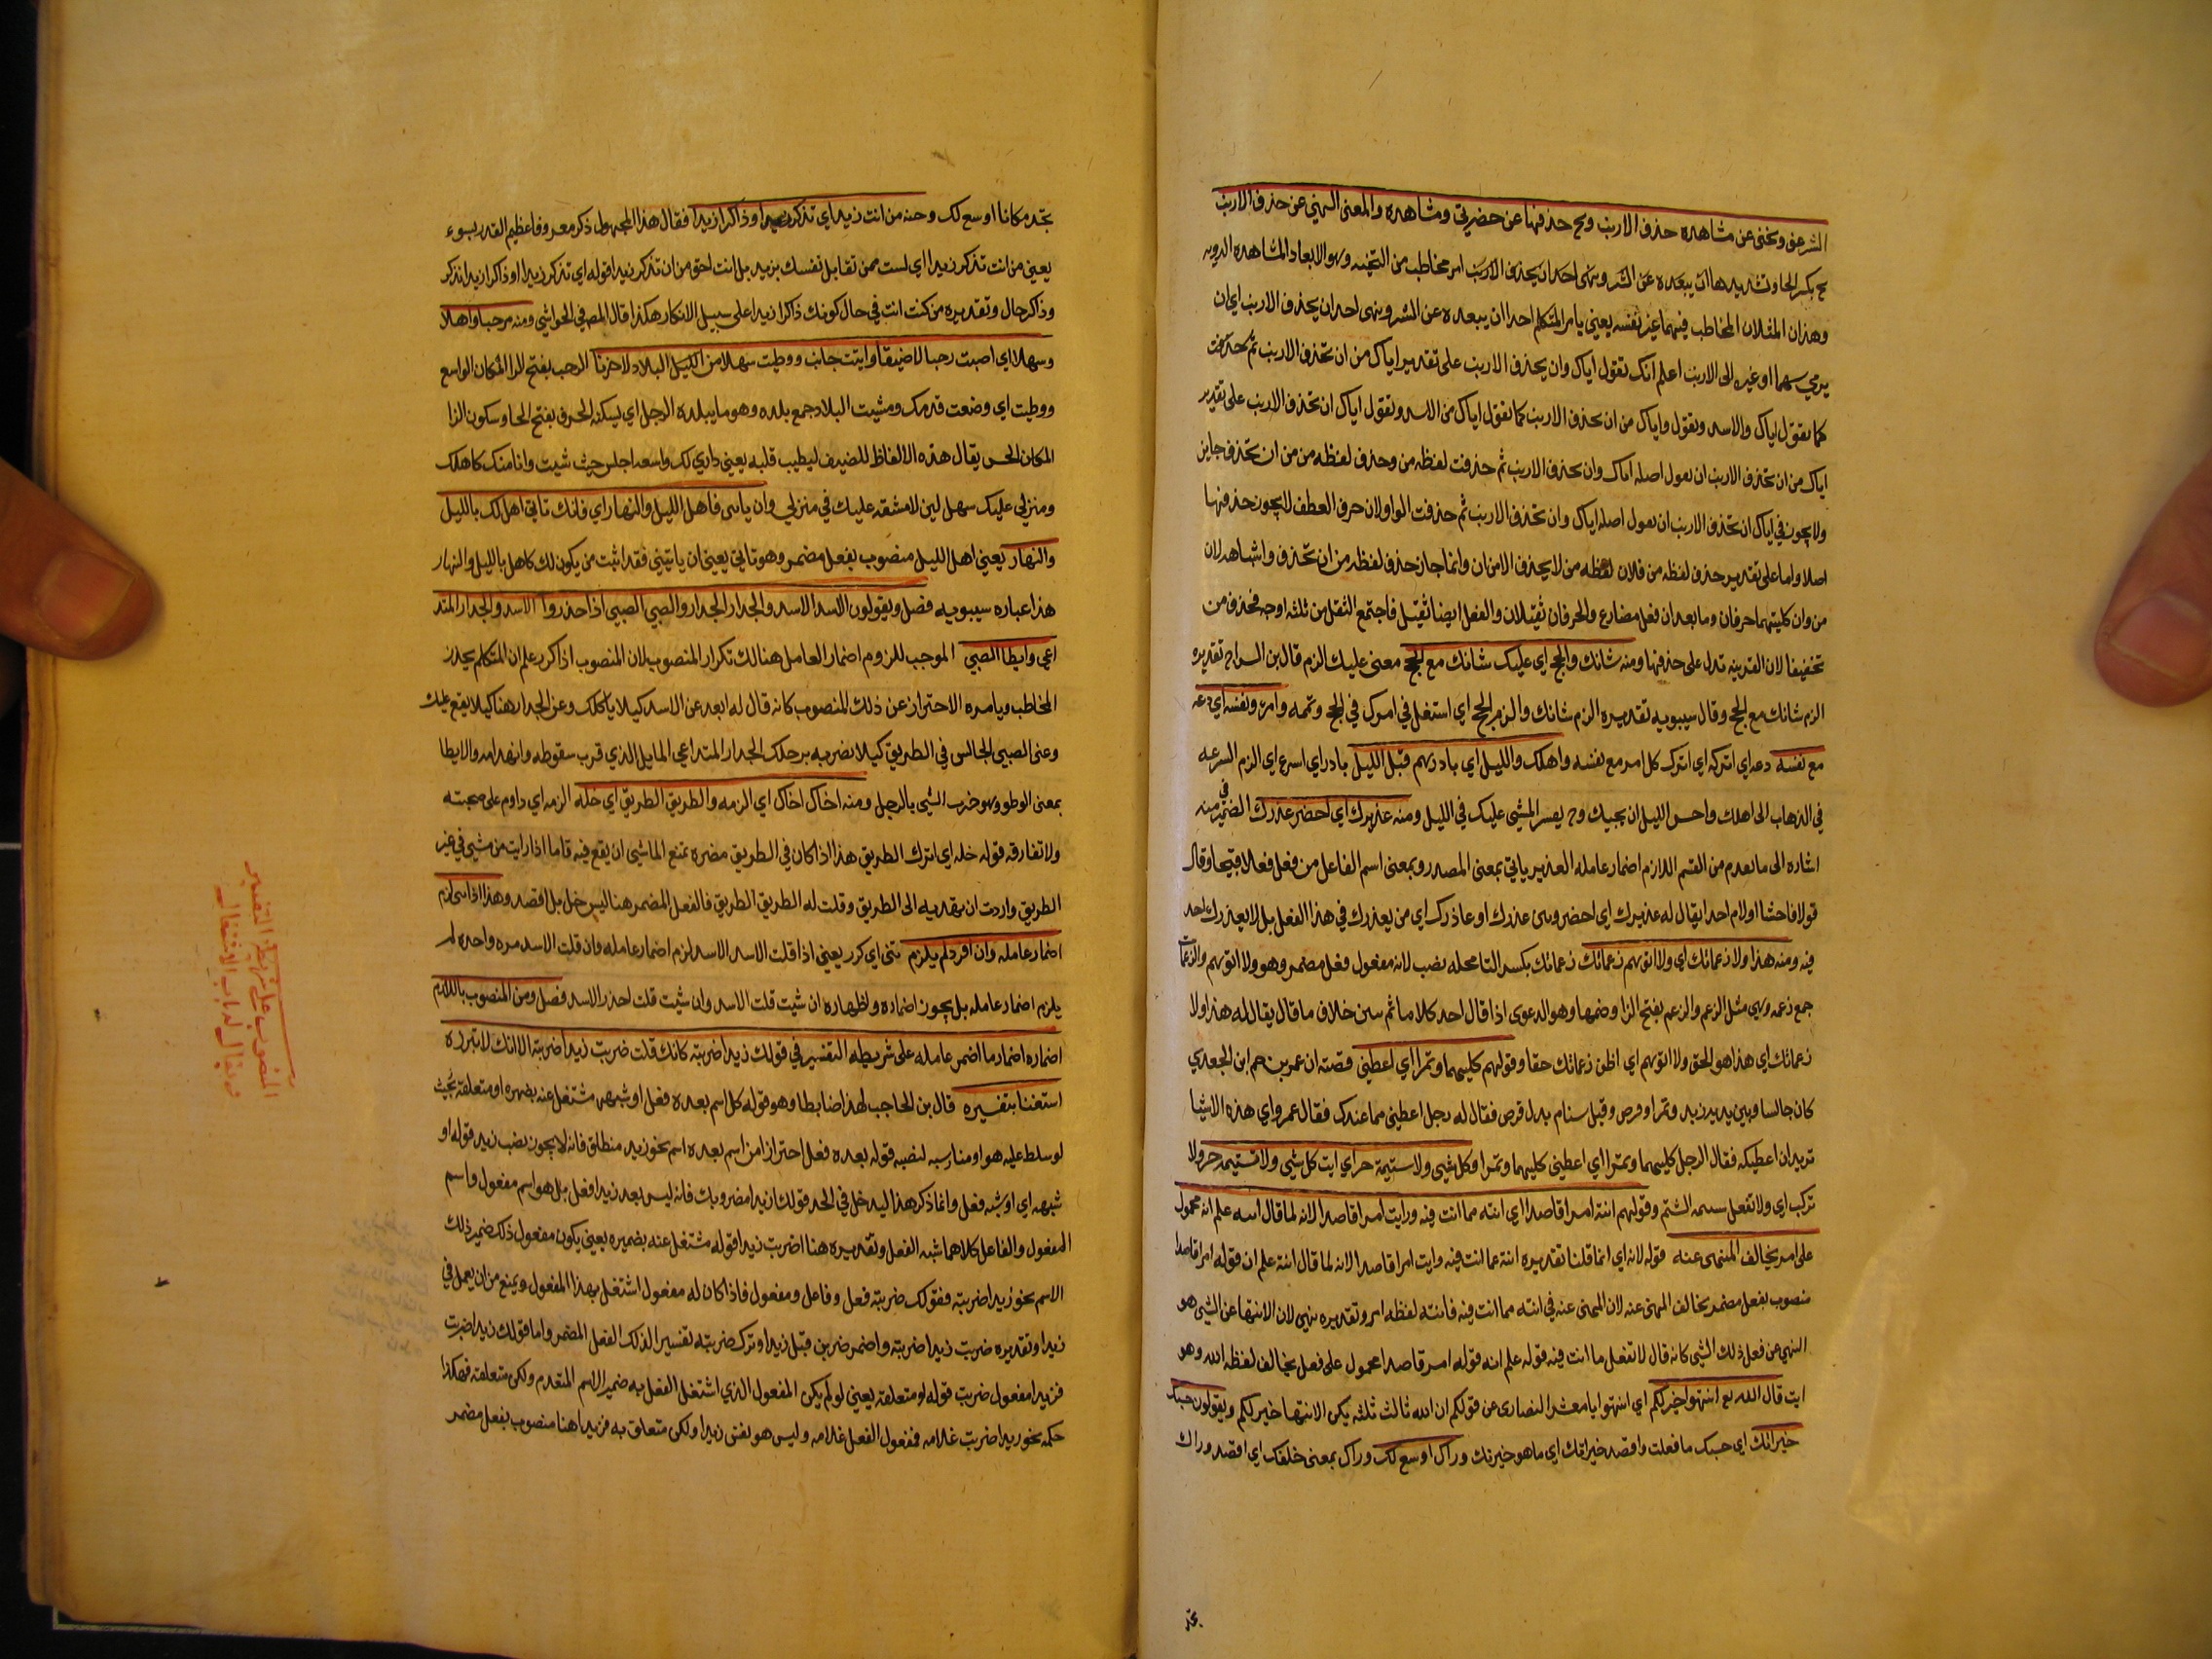 الشر عني ونحني عن مشاهدة حذف الارنب ونح حذفها عن حضرتي ومشاهده والمعنى النهي عن حذف الارنب
نح بكسر الحا وتشديدها ان يبعده عن الشر وينهى احد ان يحذف الارنب امر مخاطب من التنحيه وهو الابعاد المشاهده الرويه
وهذان المثلان المخاطب فيهما غير نفسه يعني يامر المتكلم احدا ان يبعده عن الشر وينهى احد ان يحذف الارنب اي ان
يرمي سهما او غيره الى الارنب اعلم انك تقول اياك وان يحذف الارنب على تقدير اياك من ان تحذف الارنب ثم حذفت
كما تقول اياك والاسد وتقول واياك من ان تحذف الارنب كما تقول اياك من الاسد وتقول اياك ان تحذف الارنب على تقدير
اياك من ان تحذف الارنب ان تقول اصله اياك وان تحذف الارنب ثم حذفت لفظه من وحذف لفظه من من ان تحذف جايز
ولا يجوز في اياك ان تحذف الارنب ان تقول اصله اياك وان تحذف الارنب ثم حذفت الواو لان حرف العطف لا يجوز حذفها
اصلا واما على تقدير حذف لفظه من فلان لفظه من لا يحذف الا من ان وانما جاز حذف لفظه من ان تحذف واشباهه لان
من وان كلتيهما حرفان وما بعد ان فعل مضارع والحرفان ثقيلان والفعل ايضا ثقيل فاجتمع الثقل من ثلثه اوجه فحذف من
تخفيفا لان القرينه تدل على حذفها ومنه شانك والحج اي عليك شانك مع الحج معنى عليك الزم قال بن السراج تقديره
الزم شانك مع الحج وقال سيبويه تقديره الزم شانك والزم الحج اي استغل في امرك في الحج وتممه وامرء ونفسه اي دعه
مع نفسه دعه اي اتركه اي اترك كل امر مع نفسه واهلك والليل اي بادرهم قبل الليل بادر اي اسرع اي الزم السرعه
في الذهاب الى اهلك واحسن الليل ان يجيك وح يعسر المشي عليك في الليل ومنه عذيرك اي احضر عذرك الضمير في منه
اشاره الى ما تقدم من القسم اللازم اضمار عامله العذير ياتي بمعنى المصدر وبمعنى اسم الفاعل من فعل فعلا قبيحا وقال
قولا فاحشا او لام احدا يقال له عذيرك اي احضر وبين عذرك او عاذرك اي من يعذرك في هذا الفعل بل لا يعذرك احد
فيه ومنه هذا ولا زعماتك اي ولا اتوهم زعماتك زعماتك بكسر التا محله نصب لانه مفعول فعل مضمر وهو ولا اتوهم والزعمات
جمع زعمه وهي مثل الزعم والزعم بفتح الزا وضمها وهو الدعوى اذا قال احد كلاما ثم تبين خلاف ما قال يقال له هذا ولا
زعماتك اي هذا هو الحق ولا اتوهم اي اظن زعماتك حقا وقولهم كليهما وتمرا اي اعطيني قصته ان عمر بن حمران الجعدي
كان جالسا وبين يديه زبد وتمر او قرص وقيل سنام بدل قرص فقال له رجل اعطيني مما عندك فقال عمرو اي هذه الاشيا
تريد ان اعطيكه فقال الرجل كليهما وتمرا اي اعطيني كليهما وتمرا وكل شيى ولا شتيمة حر اي ايت كل شيى ولا تشتيمه حر ولا
ترتكب اي ولا تفعل شتيمه الشتم وقولهم انته امرا قاصدا اي انته مما انت فيه ورايت امرا قاصدا لانه لما قال انته علم انه محمول
على امر يخالف المنتهى عنه قوله لانه اي انما قلنا تقديره انته عما انت فيه وايت امرا قاصدا لانه لما قال انته علم ان قوله امرا قاصدا
منصوب بفعل مضمر يخالف المنهى عنه لان المنهى عنه في انته مما انت فيه فانته لفظه امر وتقديره نهي لان الانتها عن الشي هو
النهي عن فعل ذلك الشي كانه قال لا تفعل ما انت فيه قوله علم انه قوله امرا قاصدا محمول على فعل يخالف لفظه انته وهو
ايت قال الله تع انتهوا خيرا لكم اي انتهوا يا معشر النصارى عن قولكم ان الله ثالث ثلثه يكن الانتها خيرا لكم ويقولون حسبك
خيرا لك اي حسبك ما فعلت واقصد خيرا لك اي ما هو خير لك وراك اوسع لك وراك بمعنى خلفك اي اقصد وراك
تجد
تجد مكانا اوسع لك ومنه من انت زيدا اي تذكر زيدا او ذاكرا زيدا فقال هذا المجهول ذكر معروفا عظيم القدر بسوء
يعني من انت تذكر زيدا اي لست ممن تقابل نفسك بزيد بل انت احق من ان تذكر زيدا قوله اي تذكر زيدا او ذاكرا زيدا تذكر
وذاكر حال وتقديره من كنت انت في حال كونك ذاكرا زيدا على سبيل الانكار هكذا قال المص في الحواشي ومنه مرحبا واهلا
وسهلا اي اصبت رحبا لا ضيقا واتيت جانب ووطيت سهلا من البلاد لا حزنا الرحب بفتح الرا المكان الواسع
ووطيت اي وضعت قدمك ومشيت البلاد جمع بلده وهو ما يبلده الرجل اي يسكنه الحزن بفتح الحا وسكون الزا
المكان الخشن يقال هذه الالفاظ للضيف ليطيب قلبه يعني داري لك واسعه اجلس حيث شيت وانا منك كاهلك
ومنزلي عليك سهل لين لا مشقه عليك في منزلي وان ياتني فاهل الليل والنهار اي فانك تاتي اهلا لك بالليل
والنهار يعني اهل الليل منصوب بفعل مضمر وهو تاتي يعني ان ياتيني فقد اتيت من يكون لك كاهل بالليل والنهار
هذا عباره سيبويه فصل ويقولون الاسد الاسد والجدار الجدار والصبي الصبي اذا حذروا الاسد والجدار المتد
اعي وايطا الصبي الموجب للزوم اضمار العامل هنالك تكرار المنصوب لان المنصوب اذا كرر علم ان المتكلم يحذر
المخاطب ويامره الاحتراز عن ذلك المنصوب كانه قال له ابعد عن الاسد كيلا ياكلك وعن الجدار هذا كيلا يقع عليك
وعن الصبي الجالس في الطريق كيلا تضربه برجلك الجدار المتداعي المايل الذي قرب سقوطه وانهدامه والايطا
بمعنى الوطو وهو ضرب الشي بالرجل ومنه اخاك اخاك اي الزمه والطريق الطريق اي خله الزمه اي داوم على صحبته
ولا تفارقه قوله خله اي اترك الطريق هذا اذا كان في الطريق مضره تمنع الماشي ان يقع فيه فاما اذا رايت من مشي في غير
الطريق واردت ان تهديه الى الطريق وقلت له الطريق الطريق فالفعل المضمر هنا ليس خل بل اقصد وهذا اذا ثني لزم
اضمار عامله وان افرد لم يلزم ثني اي كرر يعني اذا قلت الاسد الاسد لزم اضمار عامله وان قلت الاسد مره واحده لم
يلزم اضمار عامله بل يجوز اضماره واظهاره ان شيت قلت الاسد وان شيت قلت احذر الاسد فصل ومن المنصوب باللازم
اضماره اضمار ما اضمر عامله على شريطه التفسير في قولك زيدا ضربته كانك قلت ضربت زيدا ضربته الا انك لا تبرزه
استغنا بتفسيره قال بن الحاجب لهذا ضابطا وهو قوله كل اسم بعده فعل او شبهه مشتغل عنه بضميره او متعلقه بحيث
لو سلط عليه هو او مناسبه لنصبه قوله بعده فعل احتراز من اسم بعده اسم نحو زيد منطلق فانه لا يجوز نصب زيد قوله او
شبهه اي او شبه فعل وانما ذكر هذا ليدخل في الحد قولك زيدا مضروب فانه ليس بعد زيدا فعل بل هو اسم مفعول واسم
المفعول والفاعل كلاهما شبه الفعل وتقديره هنا اضربت زيدا قوله مشتغل عنه بضميره يعني يكون مفعول ذلك ضمير ذلك
الاسم نحو زيدا ضربته فقولك ضربته فعل وفاعل ومفعول فاذا كان له مفعول اشتغل بهذا المفعول ويمنع من ان يعمل في
زيدا وتقديره ضربت زيدا ضربته واضمر ضربت قبل زيدا وترك ضربته تفسيرا لذلك الفعل المضمر واما قولك زيدا ضربت
فزيدا مفعول ضربت قوله او متعلقه يعني لو لم يكن المفعول الذي اشتغل الفعل به ضمير الاسم المتقدم ولكن متعلقه فهكذا
حكمه نحو زيدا ضربت غلامه فمفعول الفعل غلامه وليس هو نفس زيدا ولكن متعلق به فزيدا هنا منصوب بفعل مضمر
المنصوب على شريطة التفسير
ويقال له باب الاشتغال